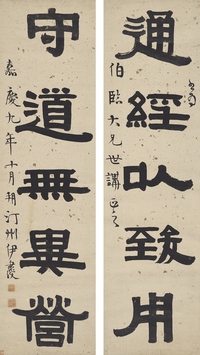 通經以致用
伯臨大兄世講正之
守道無異營
嘉慶九年十月朔汀州伊